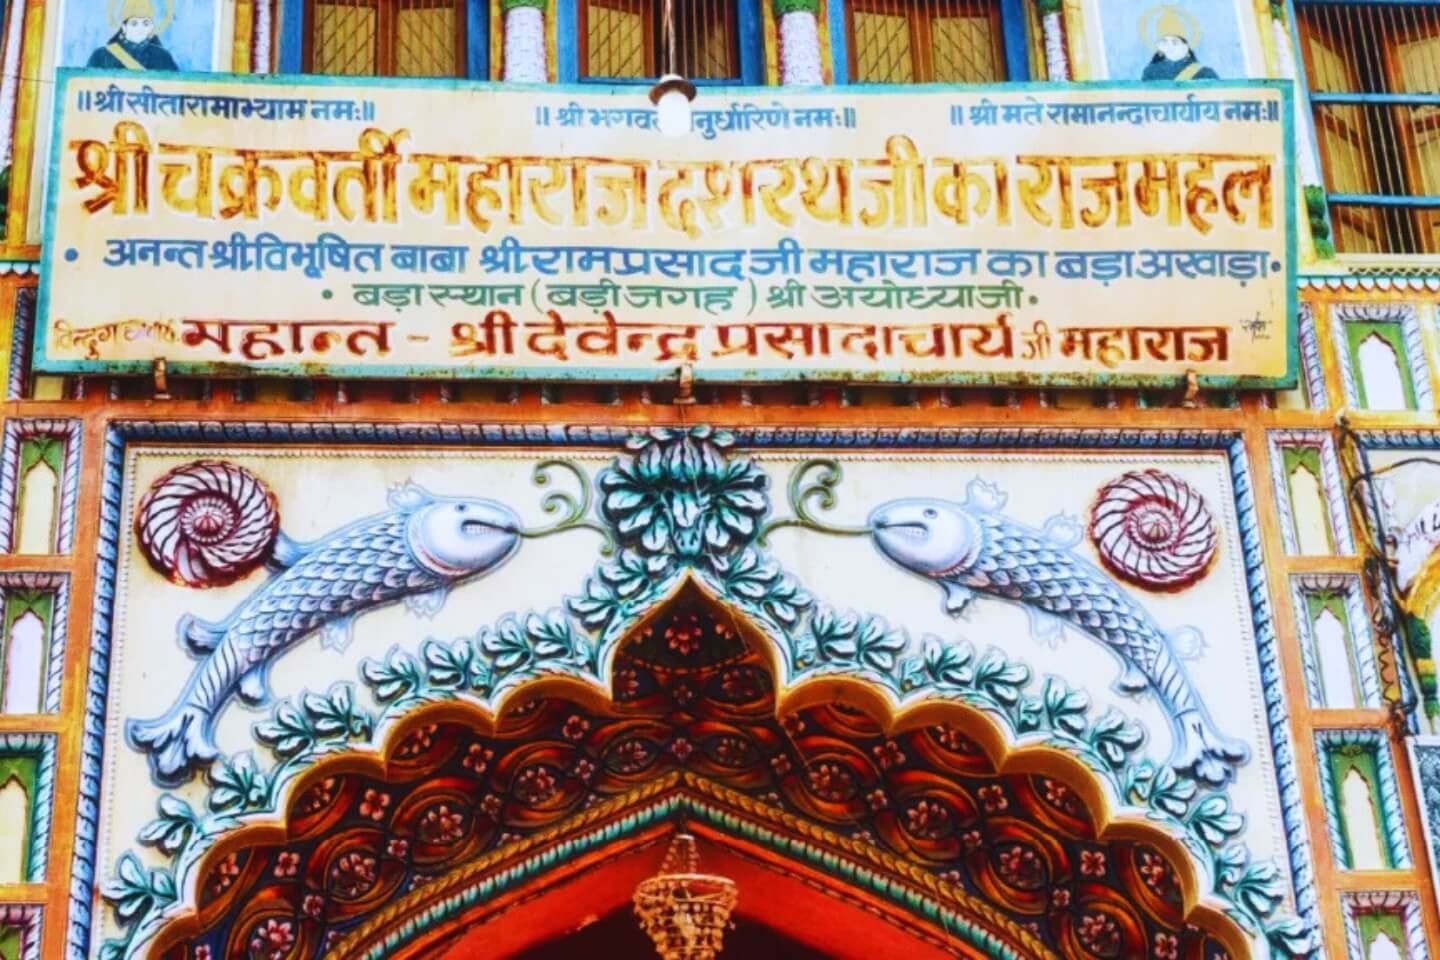 ॥ श्री सीतारामाभ्याम नमः॥ ॥ श्री मते रामानन्दाचार्याय नमः॥
श्री चक्रवर्ती महाराज दशरथ जी का राजमहल
• अनन्त श्री विभूषित बाबा श्री रामप्रसाद जी महाराज का बड़ा अखाड़ा •
• बड़ा स्थान ( बड़ी जगह ) श्री अयोध्या जी •
महान्त - श्री देवेन्द्र प्रसादाचार्य जी महाराज